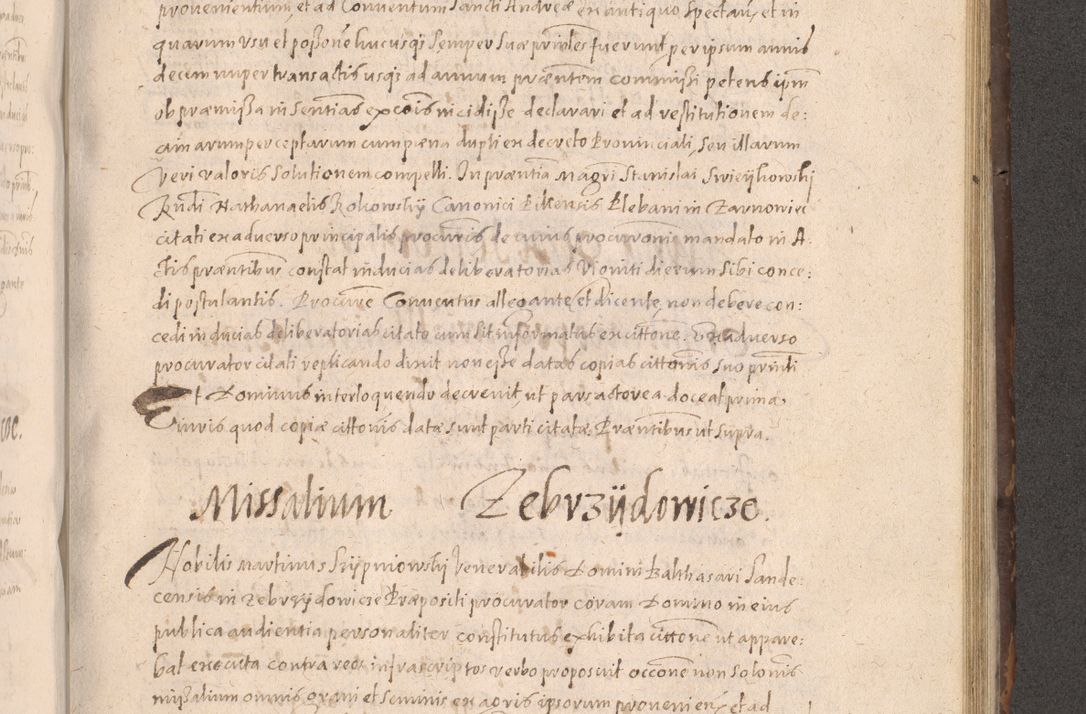 provenientium, et ad Conventum Sancti Andreæ ex antiquo spectan, et in
quarum usu et poßone hucusq; semper suæ prinles fuerunt per ipsum annis
decem nuper transactis usq; ad annum præntem commißi petens ipm
ob præmißa in sentias excois incidiße declarari et ad restitutionem de:
camarum perceptarum cum pæna dupli ex decreto Provinciali, seu illarum
veri valoris solutionem compelli. In præntia Magri Stanislai Swieykowskij
Rndi Nathanaelis Rokowskij Canonici Plebani in Zarnowiec
citati ex adverso principalis procuris de cuius procuronis mandato in A:
ctis præntibus constat inducias deliberatorias viginti dierum sibi conce:
di postulantis. Procure Convcutus allegante, et dicente, non debere con:
cedi inducias deliberatorias citato cum sit informatus ex cittone. Ex adverso
procurator citati replicando dixit non eße datas copias cittonis suo prinli
Et Dominus interloquendo decrevit, ut pars actorea doceat prima
iuris quod copiæ cittonis datæ sunt parti citatæ. Præntibus ut supra.
Missalium Zebrzÿdowicze.
Nobilis Martinus Skrÿpniowskÿ Venerabilis Domini Balthasari Sande:
censis in Zebrzÿdowicze Præpositi procurator coram Domino in eius
publica audientia personaliter constitutus exhibita cittone ut appare:
bat executa contra reos infrascriptos verbo proposuit occone non solonis
mißalium omnis grani et seminis ex agris ipsorum provenien, et ad